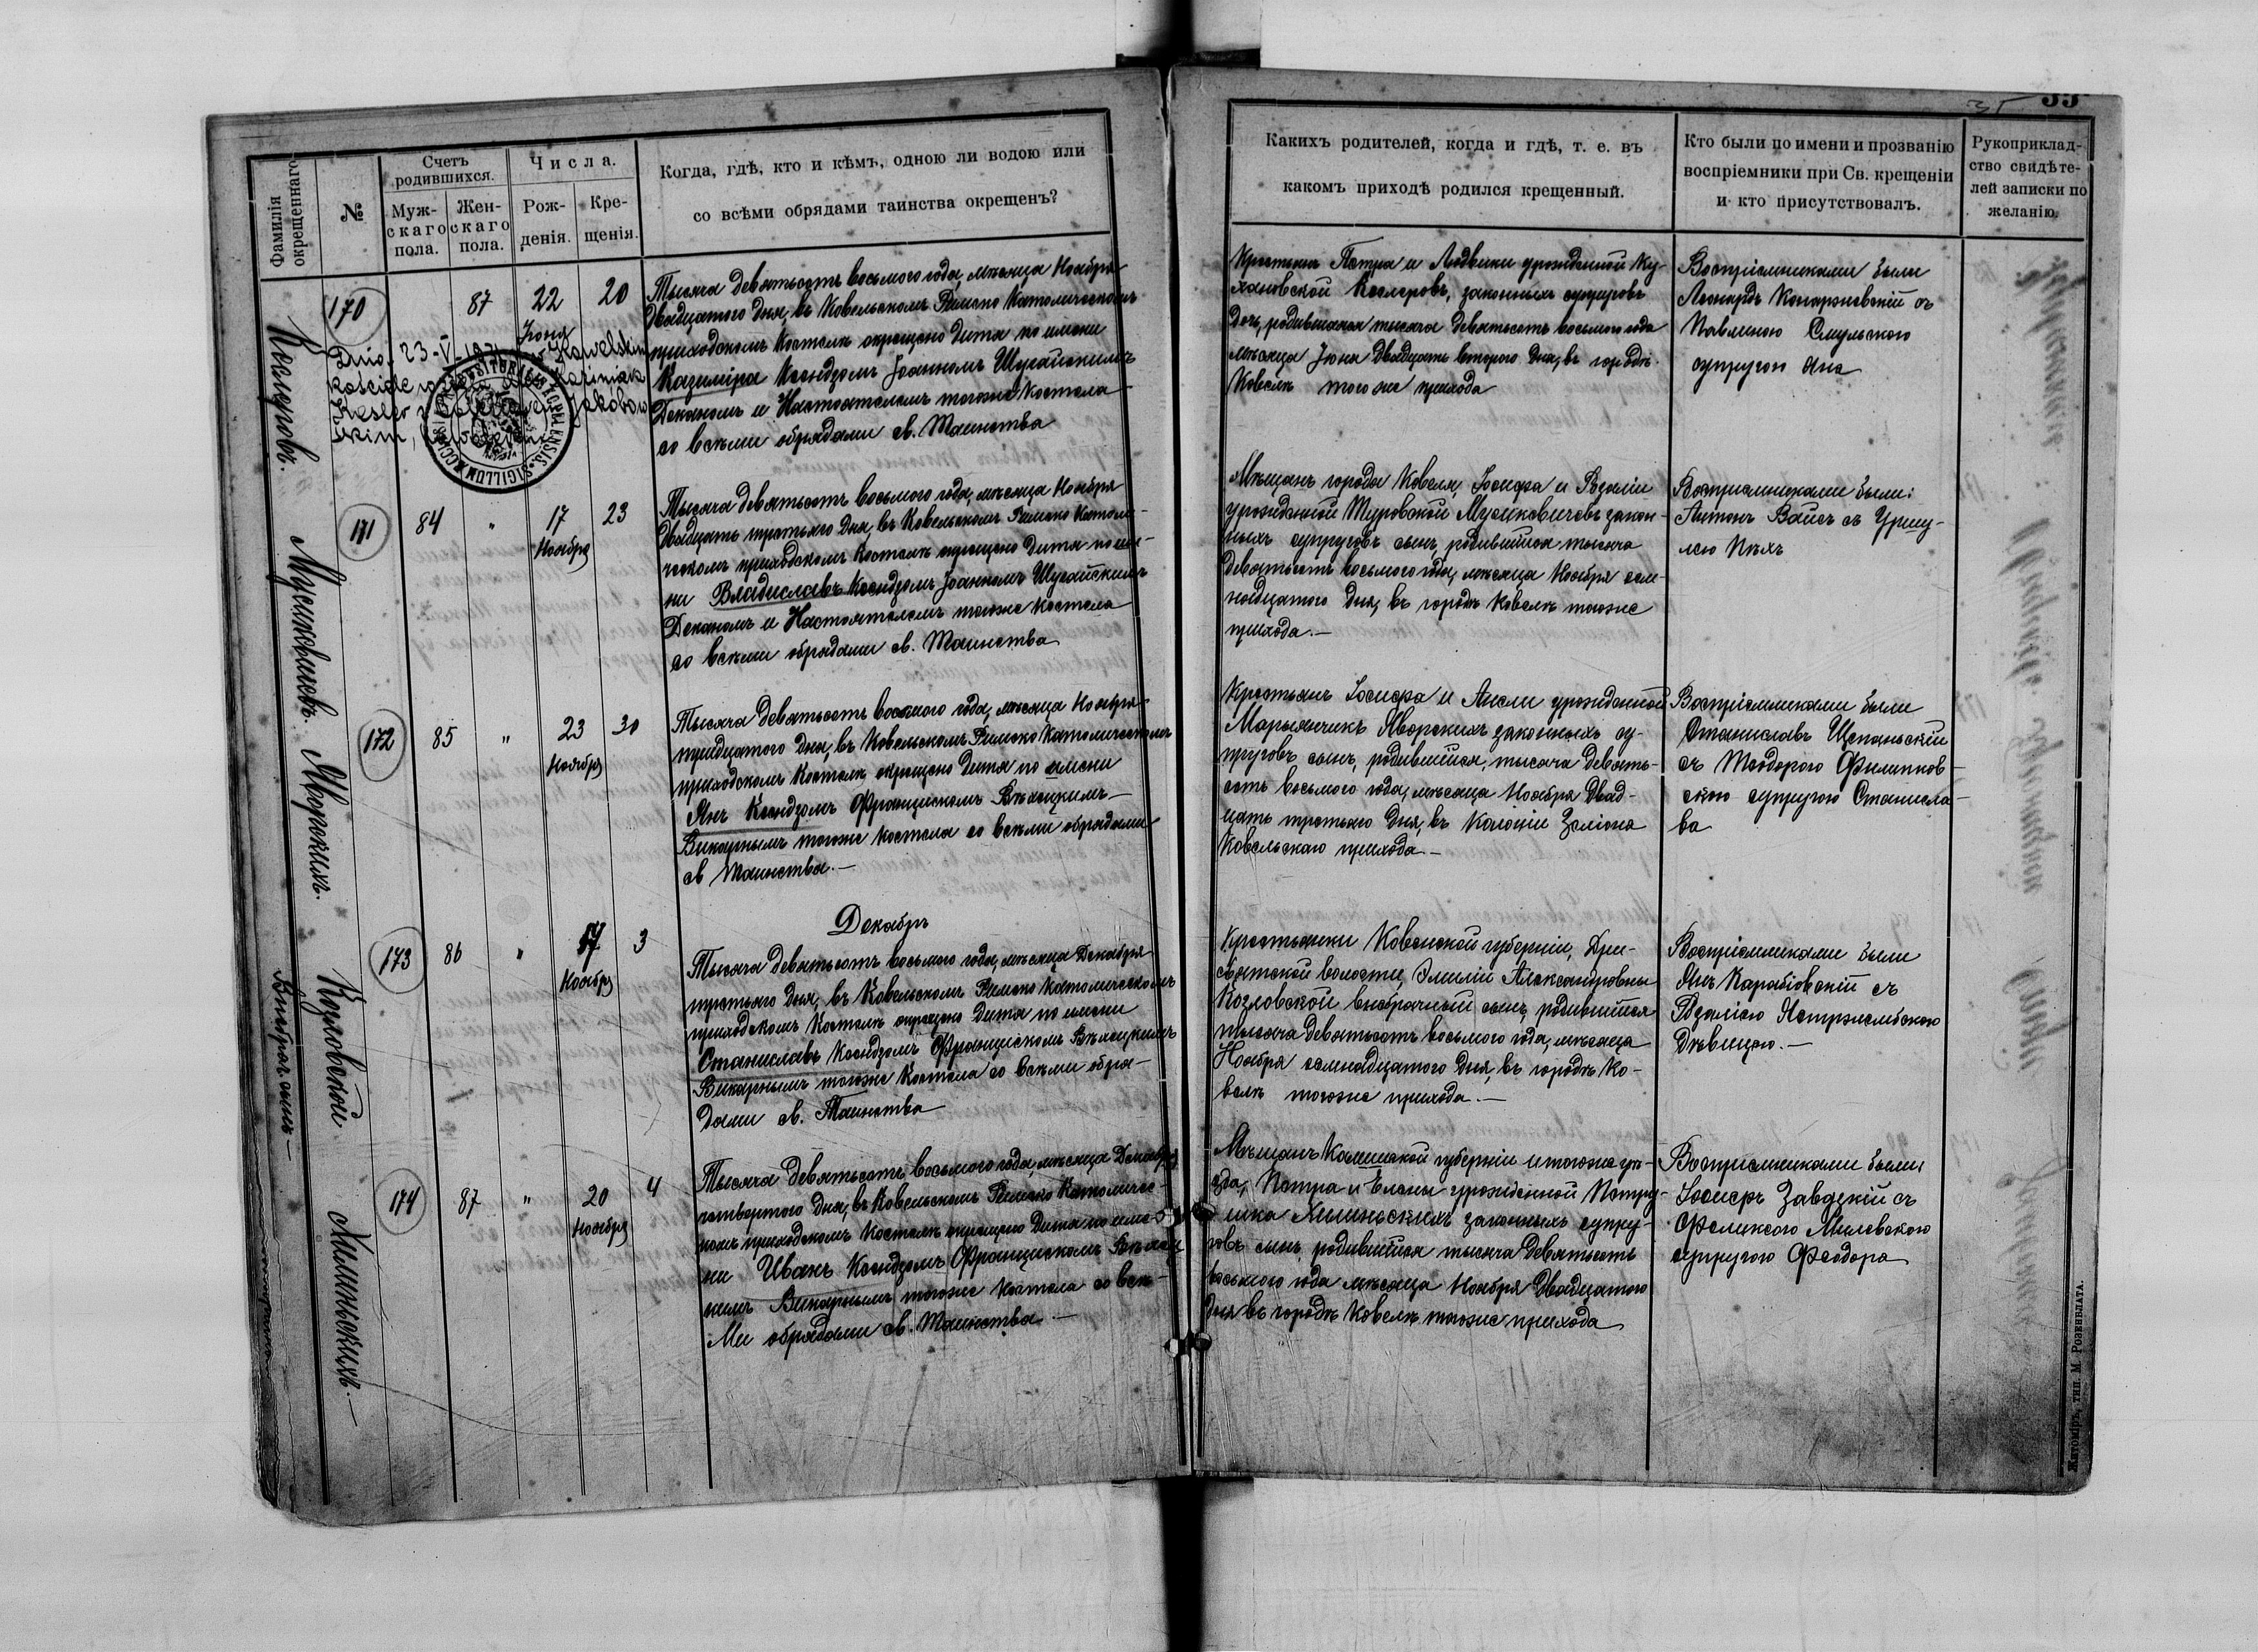 35
Фамилія окрещеннаго
№
Счетъ родившихся.
Муж-
скаго
пола.
Жен-
скаго
пола.
Числа.
Рож-
денія.
Кре-
щенія.
Когда, гдѣ, кто и кѣмъ, одною ли водою или
со всѣми обрядами таинства окрещенъ?
Какихъ родителей, когда и гдѣ, т. е. въ
какомъ приходѣ родился крещенный.
Кто были по имени и прозванію
воспріемники при Св. крещеніи
и кто присутствовалъ.
Рукоприклад-
ство свидѣте-
лей записки по
желанію.
Кеслеровъ.
170
87
22
Іюня
20
Dnia 23-V-1931 w Kowelskim
kościele
Kesler
Тысяча девятьсотъ восьмого года, мѣсяца Ноября
двадцатого дня, въ Ковельскомъ Римско Католическомъ
приходскомъ костелѣ окрещено дитя по имени
Казиміра Ксендзомъ Іоанномъ Шугайскимъ
Деканомъ и Настоятелемъ тогоже костела
со всѣми обрядами св. Таинства
Крестьянъ Петра и Людвики урожденной Ку-
хановской Кеслеровъ, законныхъ супруговъ
дочь, родившаяся тысяча девятьсотъ восьмого года
мѣсяца Іюня двадцать второго дня, въ городѣ
Ковелѣ тогоже прихода
Воспріемниками были
Леонардъ Конаржевскій съ
Павлиною Смульского
супругою Яна
Мусиковичевъ.
171
84
"
17
Ноября
23
Тысяча девятьсотъ восьмого года, мѣсяца Ноября
двадцать третьяго дня, въ Ковельскомъ Римско Католи-
ческомъ приходскомъ костелѣ окрещено дитя по име-
ни Владиславъ Ксендзомъ Іоанномъ Шугайскимъ
Деканомъ и Настоятелемъ тогоже костела
со всѣми обрядами св. Таинства
Мѣщанъ города Ковеля, Іосифа и Розаліи
урожденной Туровской Мусиковичевъ закон-
ныхъ супруговъ сынъ, родившійся тысяча
девятьсотъ восьмого года, мѣсяца Ноября сем-
надцатого дня, въ городѣ Ковелѣ тогоже
прихода.—
Воспріемниками были:
Антонъ Вайсъ съ Уршу-
лею Пѣхъ
Яворскихъ.
172
85
"
23
Ноября
30
Тысяча девятьсотъ восьмого года, мѣсяца Ноября
тридцатого дня, въ Ковельскомъ Римско Католическомъ
приходскомъ костелѣ окрещено дитя по имени
Янъ Ксендзомъ Францискомъ Вѣлецкимъ—
Викарнымъ тогоже костела со всѣми обрядами
св Таинства.—
Крестьянъ Іосифа и Анели урожденной
Марьянчикъ Яворскихъ законныхъ су-
пруговъ сынъ, родившійся, тысяча девять-
сотъ восьмого года, мѣсяца Ноября двад-
цать третьяго дня, въ Колоніи Зеліона
Ковельскаго прихода.—
Воспріемниками были
Станиславъ Щепаньскій
съ Теодорою Филипков-
скою супругою Станисла-
ва
Козловской
Внебрач. сынъ—
Декабрь
173
86
"
17
Ноября
3
Тысяча девятьсотъ восьмого года, мѣсяца Декабря
третьяго дня, въ Ковельскомъ Римско Католическомъ
приходскомъ костелѣ окрещено дитя по имени
Станиславъ Ксендзомъ Францискомъ Вѣлецкимъ
Викарнымъ тогоже костела со всѣми обря-
дами св. Таинства
Крестьянки Ковенской губерніи, Дри-
святской волости, Эмиліи Александровны
Козловской внебрачный сынъ, родившійся
тысяча девятьсотъ восьмого года, мѣсяца
Ноября семнадцатого дня, въ городѣ Ко-
велѣ тогоже прихода.—
Воспріемниками были
Янъ Карабіовскій съ
Розаліею Ястржембскою
Дѣвицею.—
Хилиньскихъ.—
174
87
"
20
Ноября
4
Тысяча девятьсотъ восьмого года, мѣсяца Декабря
четвертого дня, въ Ковельскомъ Римско Католичес-
комъ приходскомъ костелѣ окрещено дитя по име-
ни Иванъ Ксендзомъ Францискомъ Вѣлец
кимъ Викарнымъ тогоже костела со всѣ-
ми обрядами св. Таинства.—
Мѣщанъ Калишской губерніи и тогоже уѣ-
зда, Петра и Елены урожденной Петру-
шка Хилиньскихъ законныхъ супру-
говъ сынъ, родившійся тысяча девятьсотъ
восьмого года мѣсяца Ноября двадцатого
дня въ городѣ Ковелѣ тогоже прихода
Воспріемниками были
Іосифъ Завадскій съ
Феликсою Милевскою
супругою Феодора
Житоміръ, тип. М. Розенблата.